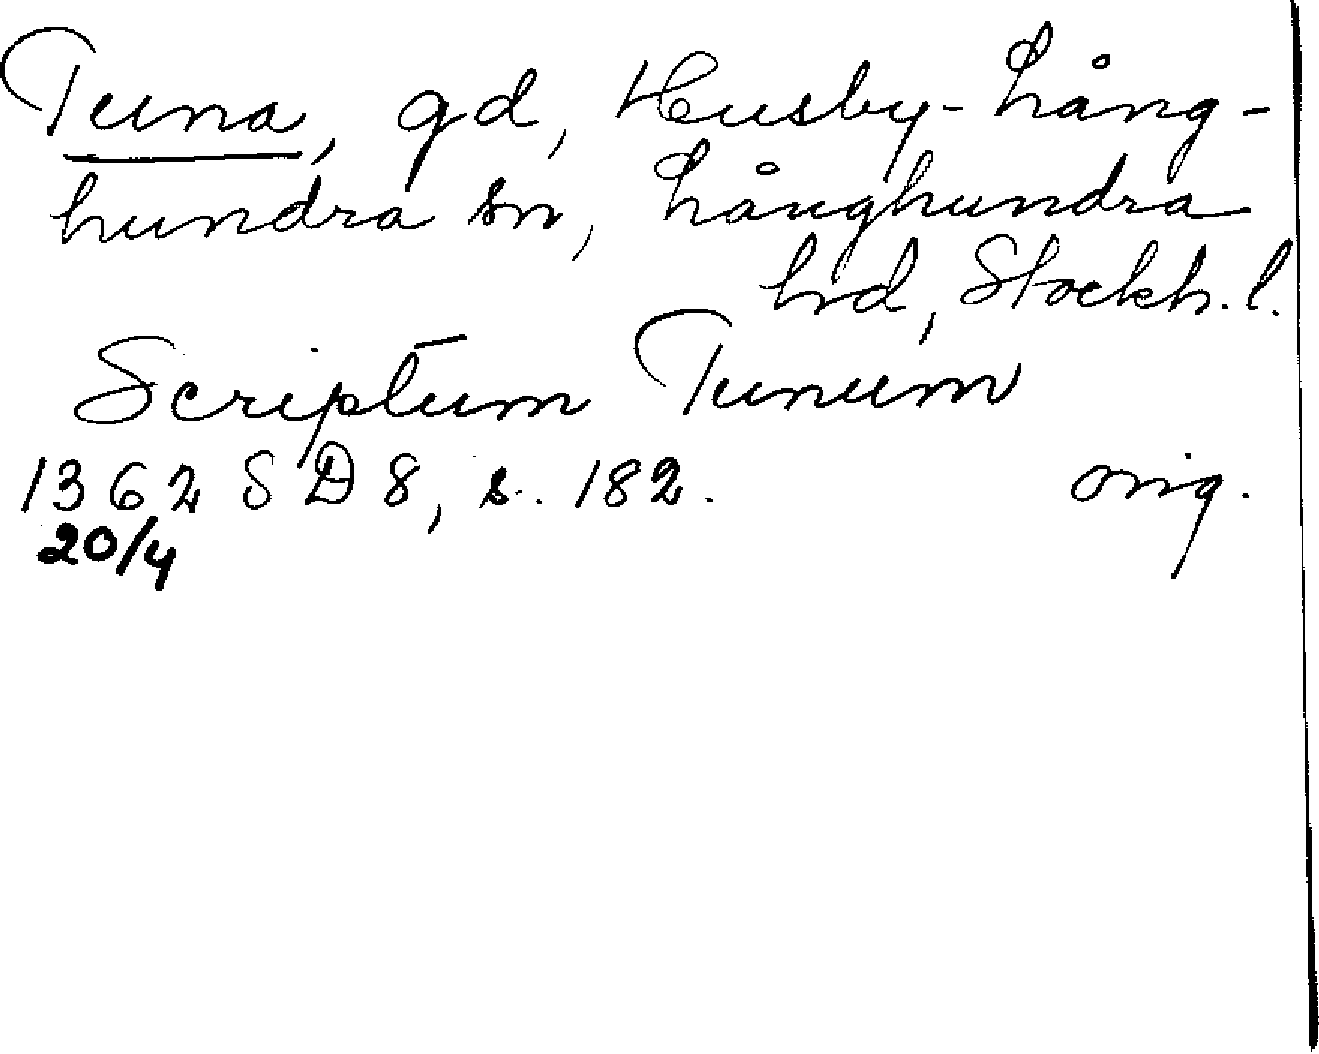 Tuna, gd, Husby-Lång-
hundra sn, Långhundra
hd, Stockh. l.
Scriptum Tunum
1362 SD 8, s. 182. orig.
20/4